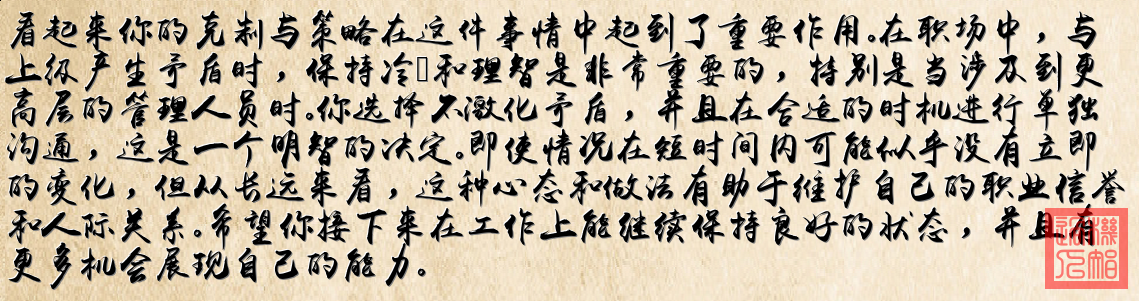 看起来你的克制与策略在这件事情中起到了重要作用。在职场中，与
上级产生矛盾时，保持冷和理智是非常重要的，特别是当涉及到更
高层的管理人员时。你选择不激化矛盾，并且在合适的时机进行单独
沟通，这是一个明智的决定。即使情况在短时间内可能似乎没有立即
的变化，但从长远来看，这种心态和做法有助于维护自己的职业信誉
和人际关系。希望你接下来在工作上能继续保持良好的状态，并且有
更多机会展现自己的能力。